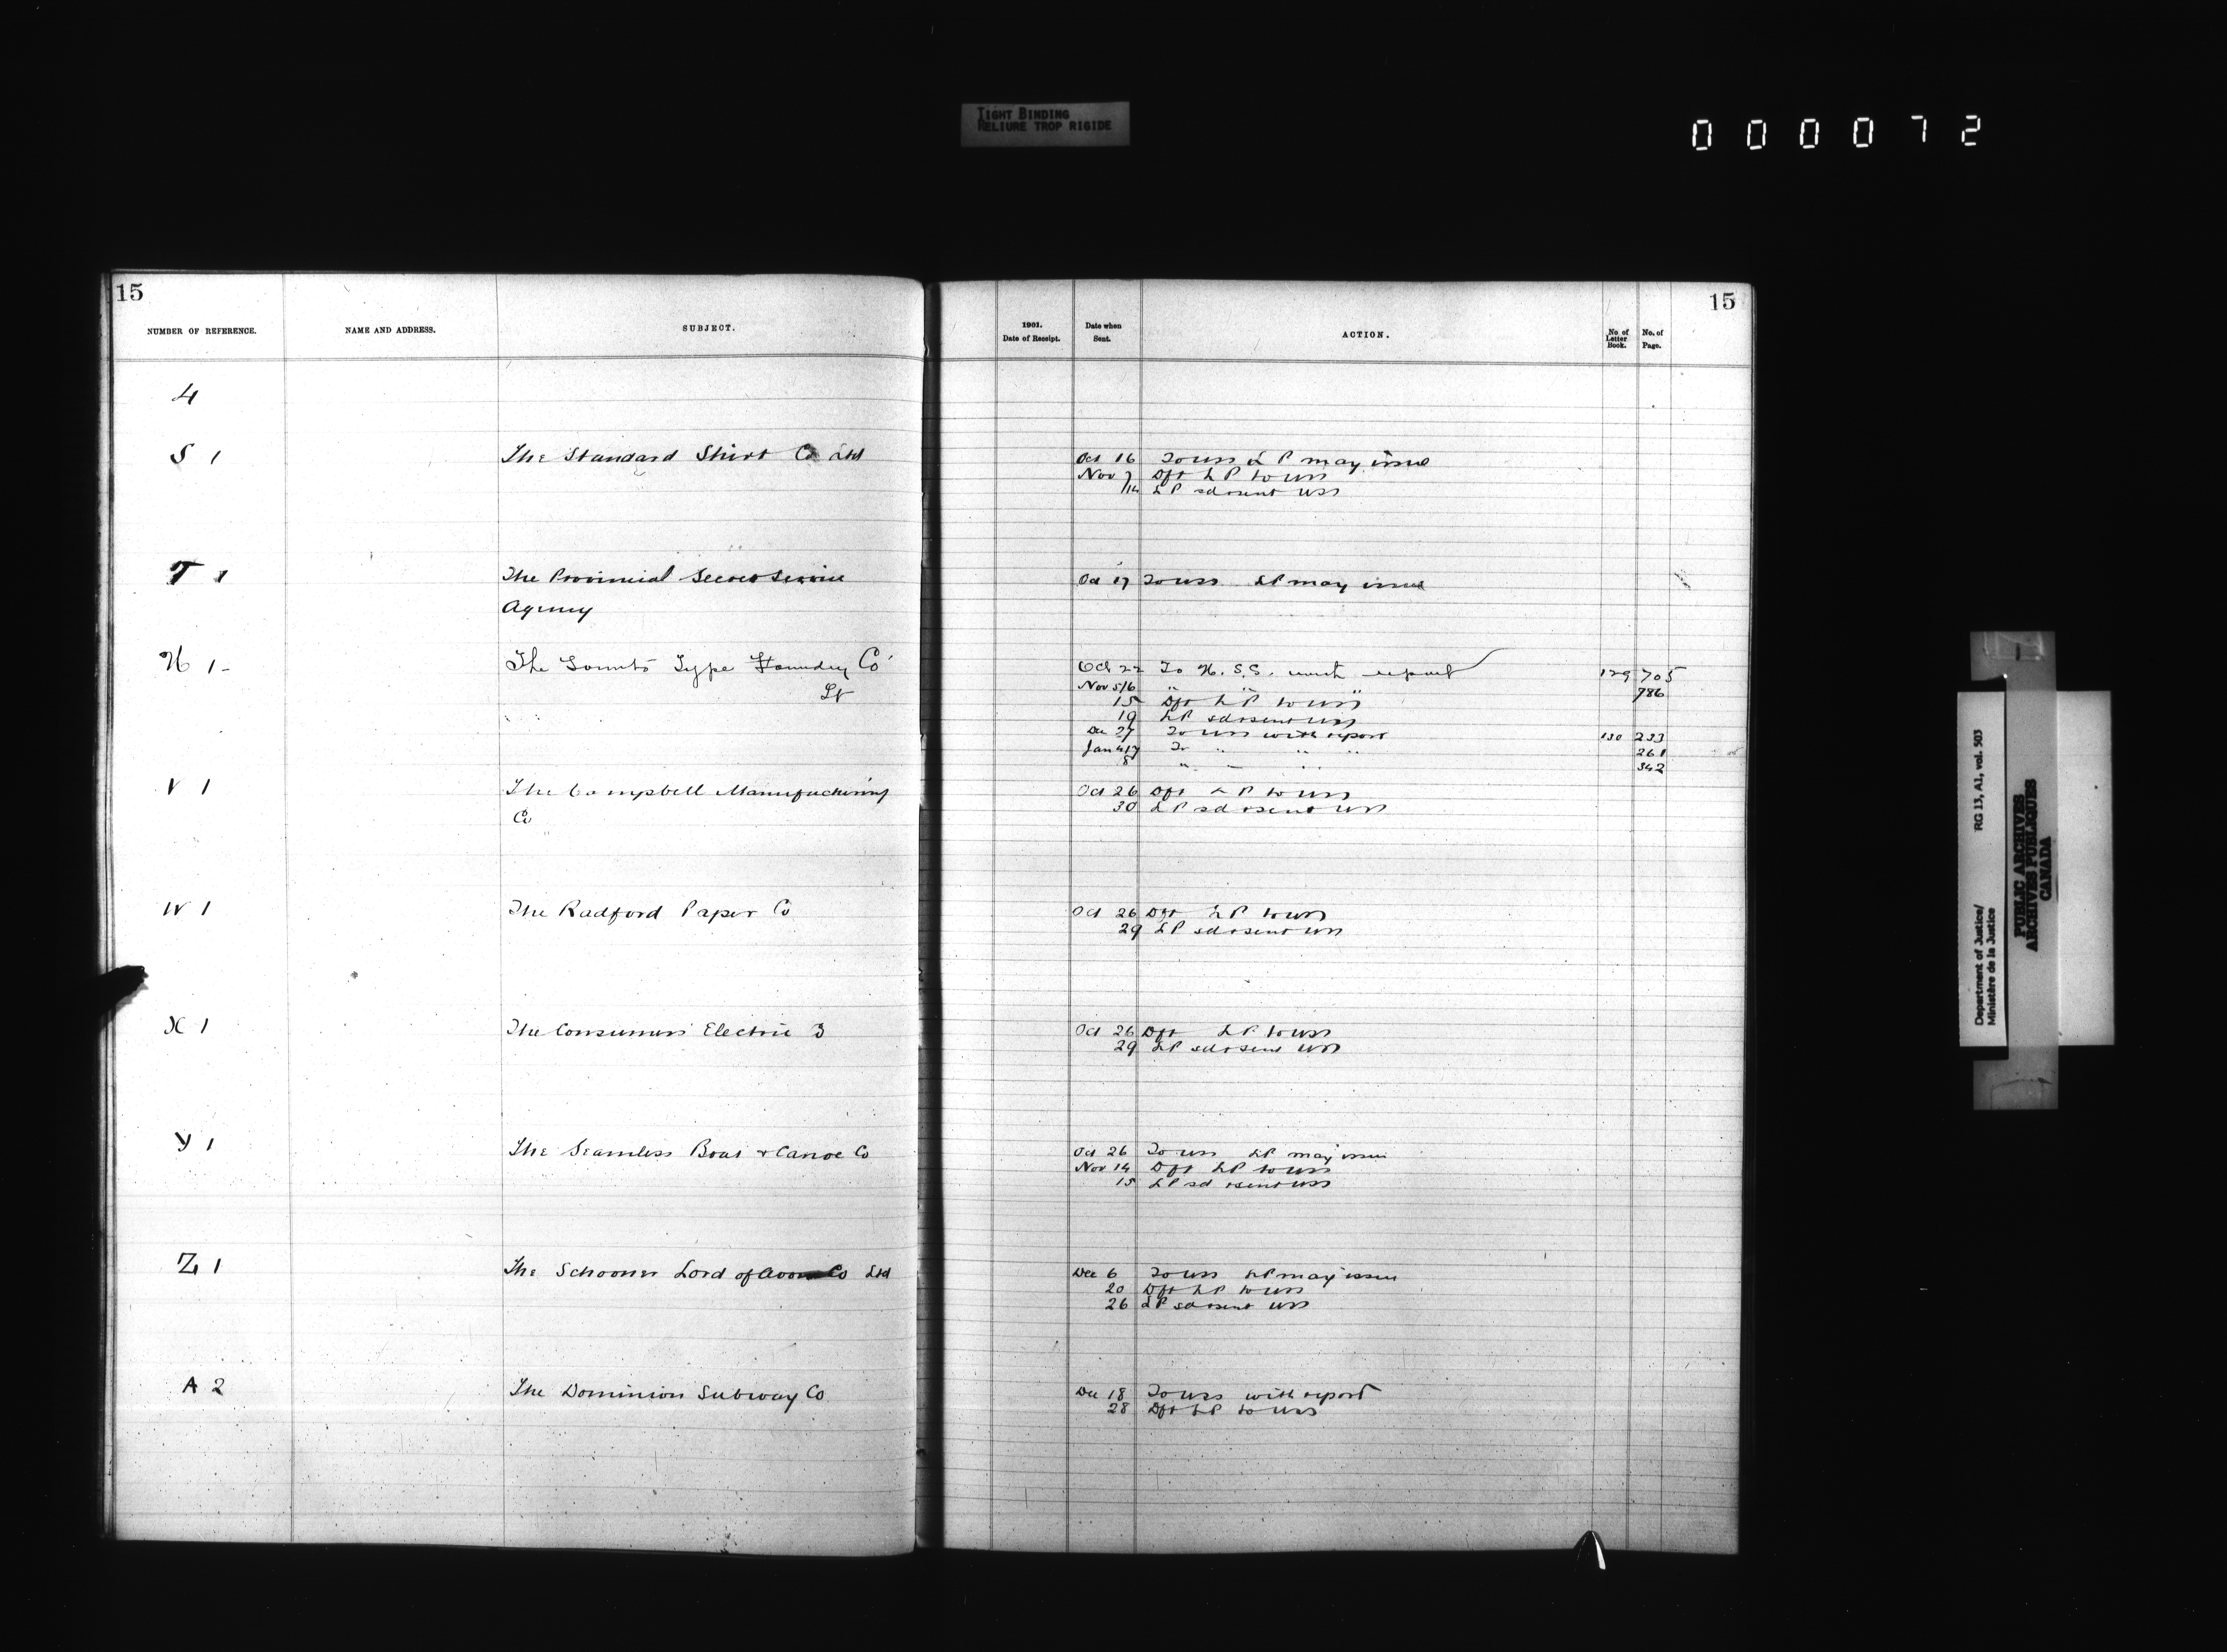 TIGHT BINDING
RELIURE TROP RIGIDE
000072
15
NUMBER OF REFERENCE.
NAME AND ADDRESS.
SUBJECT.
1901.
Date of Receipt.
Date when
Sent.
ACTION.
No of
Letter
Book.
No. of
Page.
15
4
S 1
The Standard Shirt Co Ltd
Oct 16 To uss L P may issue
Nov 7 Dft L P to uss
14 L P sd & sent uss
T 1
The Provincial Secret Service
Agency
Oct 17 To uss LP may issue
1-
The Type Foundry Co
Lt
Oct 22 To S.S. with report 129 705
Nov 5/6 " " " 786
15 Dft L P to uss
19 LP sd & sent uss
Dec 27 To uss with report 130 233
Jan To " " " 261
8 " " 342
V 1
The Campbell Manufacturing
Co
Oct 26 Dft L P to uss
30 L P sd & sent uss
W 1
The Radford Paper Co
Oct 26 Dft L P to uss
29 L P sd & sent uss
X 1
The Consumers Electric
Oct 26 Dft L P to uss
29 LP sd & sent uss
Y 1
The Seamless Boat & Canoe Co
Oct 26 To uss LP may issue
Nov 14 Dft LP to uss
15 L P sd & sent uss
Z 1
The Schooner Lord of Avon Co Ltd
Dec 6 To uss LP may issue
20 Dft LP to uss
26 LP sd & sent uss
A 2
The Dominion Subway Co
Dec 18 To uss with report
28 Dft LP to uss
Department of Justice/
Ministère de la Justice
RG 13, A1, vol. 503
PUBLIC ARCHIVES
ARCHIVES PUBLIQUES
CANADA